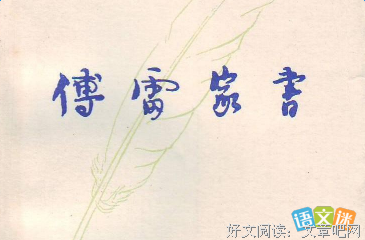 傅雷家書
语文迷
好文阅读：文章吧网